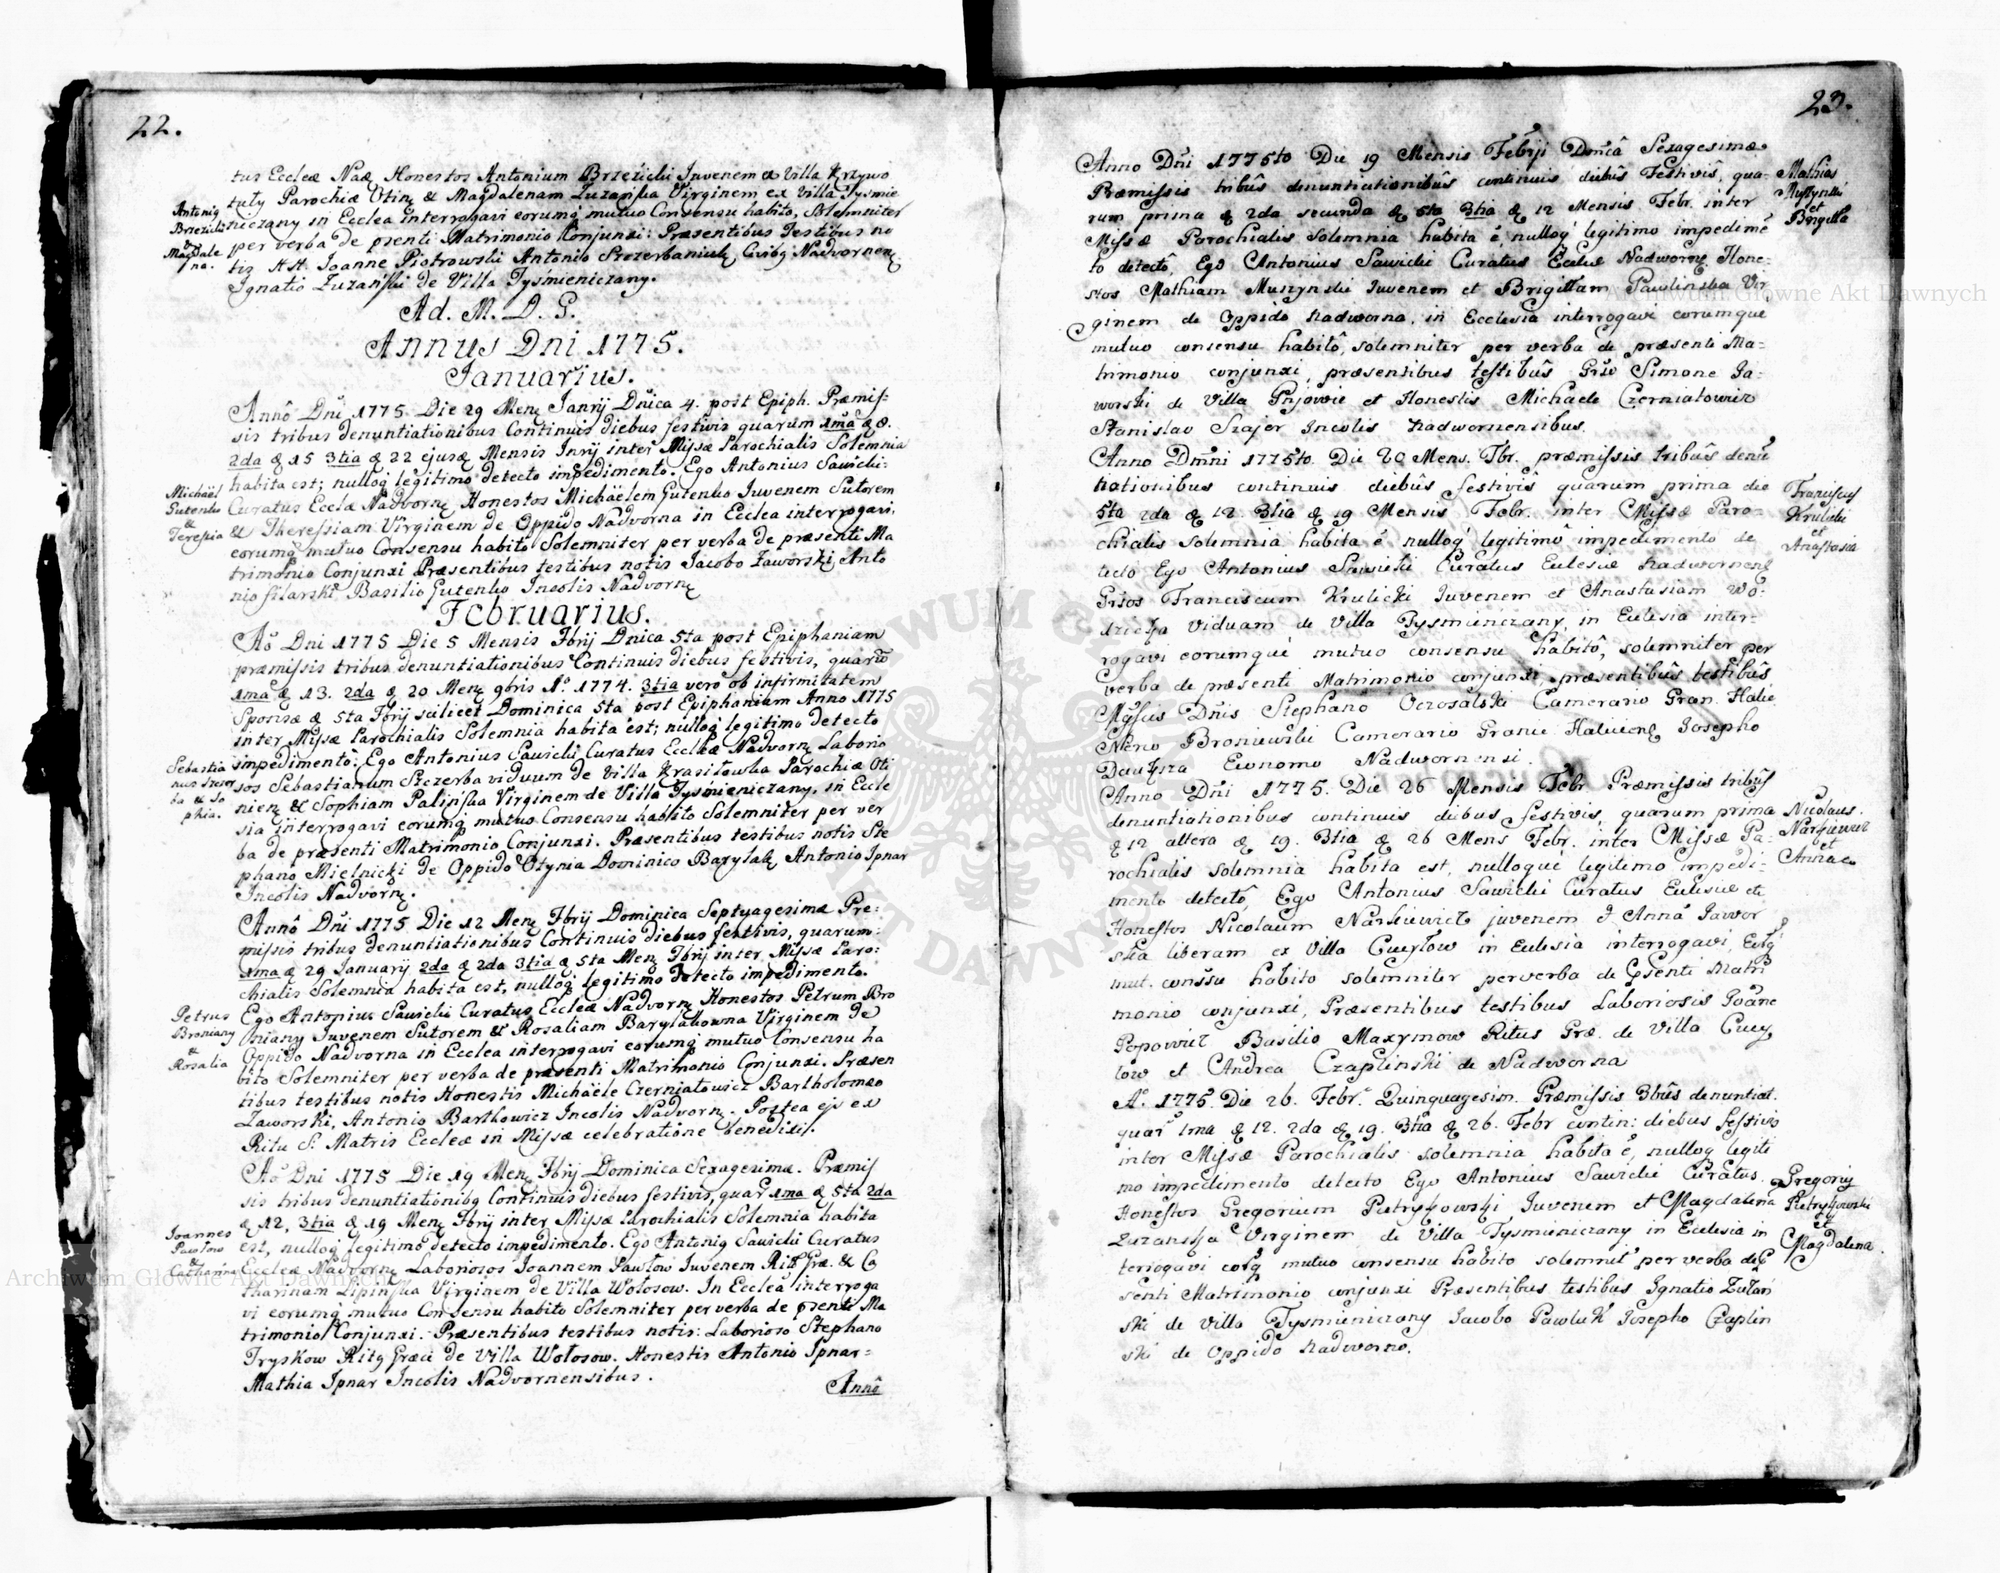 22.
tus Eccleæ Naæ Honestos Antonium Brzezicki Juvenem ex Villa Krzywo
tuły Parochiæ Otin & Magdalenam Zuzańska Virginem ex Villa Tyśmie
niczany in Ecclea interrogavi eorumq mutuo Consensu habito, Solemniter
per verba de psenti Matrimonio Conjunxi: Præsentibus Testibus no
tis AA. Joanne Piotrowski Antonio Szczerbaniuk, Civibq Nadvornen
Ignatio Zuzański de Villa Tyśmieniczany.
Antonig
Brzezicki
&
Magdale
na.
Ad. M. D. G.
Annus Dni 1775.
Januarius.
Annô Dni 1775. Die 29 Men Janrij Dnica 4. post Epiph. Præmis-
sis tribus denuntiationibus Continuis diebus festivis quarum 1ma d 8.
2da d 15 3tia d 22 ejusq Mensis Jnrij inter Missæ Parochialis Solemnia
habita est; nulloq legitimo detecto impedimento. Ego Antonius Sawicki
Curatus Ecclæ Nadvorn Honestos Michäelem Gutenko Juvenem Sutorem
& Theressiam Virginem de Oppido Nadvorna in Ecclea interrogavi,
eorumq mutuo Consensu habito Solemniter per verba de præsenti Ma
trimonio Conjunxi Præsentibus testibus notis Jacobo Zaworski Anto
nio Silarski Basilio Gutenko Incolis Nadvorn
Michäel
Gutenko
&
Teressia
Februarius.
Aô Dni 1775 Die 5 Mensis Fbrij Dnica 5ta post Epiphaniam
præmissis tribus denuntiationibus Continuis diebus festivis, quarũ
1ma d 13. 2da d 20 Men 9bris Aº 1774. 3tia vero ob infirmitatem
Sponsæ d 5ta Fbrij scilicet Dominica 5ta post Epiphaniam Anno 1775
inter Missæ Parochialis Solemnia habita est; nulloq legitimo detecto
impedimentô: Ego Antonius Sawicki Curatus Eccleæ Nadvorn Laborio
sos Sebastianum Szczerba viduum de Villa Krasiłowka Parochiæ Oti
nien & Sophiam Palińska Virginem de Villa Tyśmieniczany, in Eccle
sia interrogavi eorumq mutuo Consensu habito Solemniter per ver
ba de præsenti Matrimonio Conjunxi. Præsentibus testibus notis Ste
phano Mielnicki de Oppido Otynia Dominico Baryłak Antonio Ipnar
Incolis Nadvorn.
Sebastia
nus Szczer
ba & So
phia.
Annô Dni 1775 Die 12 Men Fbrij Dominica Septuagesimæ Præ-
missis tribus denuntiationibus Continuis diebus festivis, quarum
1ma d 29 Januarij 2da d 2da 3tia d 5ta Men Fbrij inter Missæ Paro-
chialis Solemnia habita est, nulloq legitimo detecto impedimento.
Ego Antonius Sawicki Curatus Eccleæ Nadvorn Honestos Petrum Bro
niany Juvenem Sutorem & Rosaliam Baryłakowna Virginem de
Oppido Nadvorna in Ecclea interrogavi eorumq mutuo Consensu ha
bito Solemniter per verba de præsenti Matrimonio Conjunxi. Præsen
tibus testibus notis Honestis Michäele Czerniatowicz Bartholomæo
Zaworski, Antonio Bartkowicz Incolis Nadvorn. Postea ejs ex
Ritu S. Matris Eccleæ in Missæ celebratione benedixi.
Petrus
Broniany
&
Rosalia
Aô Dni 1775 Die 19 Men Fbrij Dominica Sexagesimæ. Præmis
sis tribus denuntiationibq Continuis diebus festivis, quar 1ma d 5ta 2da
d 12, 3tia d 19 Men Fbrij inter Missæ Parochialis Solemnia habita
est, nulloq legitimo detecto impedimento. Ego Antonig Sawicki Curatus
Eccleæ Nadvorn Laboriosos Joannem Pawłow Juvenem Rit Græ. & Ca
tharinam Lipińska Virginem de Villa Wołosow. In Ecclea interroga
vi eorumq mutuo Consensu habito Solemniter per verba de psenti Ma
trimonio Conjunxi. Præsentibus testibus notis: Laborioso Stephano
Tryskow Ritq Græci de Villa Wołosow. Honestis Antonio Ipnar-
Mathia Ipnar Incolis Nadvornensibus.
Joannes
Pawłow
&
Catharina
Annô
23.
Anno Dñi 1775to Die 19 Mensis Febrji Dnicâ Sexagesimæ
Præmissis tribûs denuntiationibûs continuis diebûs Festivis, qua-
rum prima d 2da secunda d 5ta 3tia d 12 Mensis Febr. inter
Missæ Parochialis Solemnia habita ê, nulloq legitimo impedimẽ
to detectô, Ego Antonius Sawicki Curatus Eccliæ Nadworn Hone-
stos Mathiam Muszynski Juvenem et Brigittam Pawlinska Vir
ginem de Oppido Nadworna, in Ecclesia interrogavi eorumque
mutuo consensu habitô, solemniter per verba de præsenti Ma-
trimonio conjunxi, præsentibus testibûs Grô Simone Ja-
worski de Villa Pnjowie et Honestis Michaele Czerniatowicz
Stanislao Szajer Incolis Nadwornensibus.
Mathias
Muszynski
et
Brigitta
Anno Dmni 1775to. Die 20 Mens. Fbr. præmissis tribûs denũ
tiationibus continuis diebûs festivis quarum prima die
5ta 2da d 12 3tia d 19 Mensis Febr. inter Missæ Paro-
chialis solemnia habita ê nulloq legitimô impedimento de
tecto Ego Antonius Sawicki Curatus Eclesiæ Nadwornen
Grsos Franciscum Krulicki Juvenem et Anastasiam Wo-
Viduam de Villa Tysmieniczany, in Eclesia inter-
rogavi eorumque mutuo consensu habitô, solemniter per
verba de præsenti Matrimonio conjunxi, præsentibûs testibûs
Mgfcis Dnis Stephano Ocrosalski Camerario Gran. Halic
Nerio Broniewski Camerario Granic. Halicien Josepho
Economo Nadwornensi.
Franciscus
Krulicki
et
Anastasia
Anno Dñi 1775. Die 26 Mensis Febr Præmissis tribûs
denuntiationibus continuis diebus festivis, quarum prima
d 12 altera d 19. 3tia d 26 Mens Febr. inter Missæ Pa-
rochialis solemnia habita est, nulloque legitimo impedi-
mento detectô, Ego Antonius Sawicki Curatus Eclesiæ etc
Honestos Nicolaum Narkiewicz juvenem & Annã Jawor
ska liberam ex Villa Cucyłow in Eclesia interrogavi, Eorq
mut. conssu habito solemniter per verba de psenti Matri
monio conjunxi, Præsentibus testibus Laboriosis Joãne
Popowicz Basilio Maxymow Ritus Græ. de Villa Cucy
łow et Andrea Czaplinski de Nadworna
Nicolaus.
Narkiewicz
et
Annæ
Aº. 1775. Die 26. Febr. Quinquagesim. Præmissis 3bûs denuntiat.
quar 1ma d 12. 2da d 19. 3tia d 26. Febr contin: diebus festivis
inter Missæ Parochialis solemnia habita ê, nulloq legiti
mo impedimento detecto Ego Antonius Sawicki Curatus
Honestos Gregorium Pietryszowski Juvenem et Magdalena
Virginem de Villa Tysmieniczany in Ecclesia in
terrogavi eorq mutuo consensu habito solemnit per verba de p
senti Matrimonio conjunxi Præsentibus testibus Ignatio Zuzan
ski de Villa Tysmieniczany Jacobo Pawluk Josepho Czaplin
ski de Oppido Nadworno.
Gregorij
Pietryszowski
et
Magdalena.
Archiwum Główne Akt Dawnych
Archiwum Główne Akt Dawnych
ARCHIWUM GŁÓWNE AKT DAWNYCH